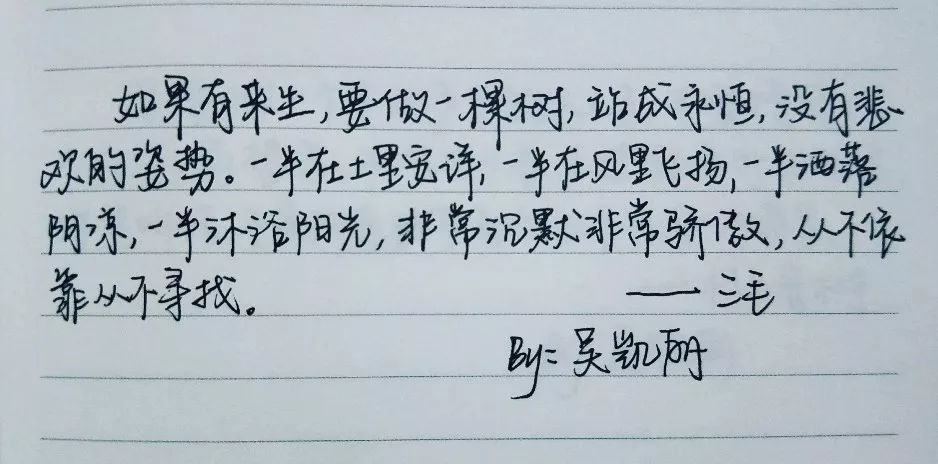 如果有来生,要做一棵树,站成永恒,没有悲
欢的姿势。一半在土里安详,一半在风里飞扬,一半洒落
阴凉,一半沐浴阳光,非常沉默非常骄傲,从不依
靠从不寻找。 —— 三毛
By: 吴凯丽